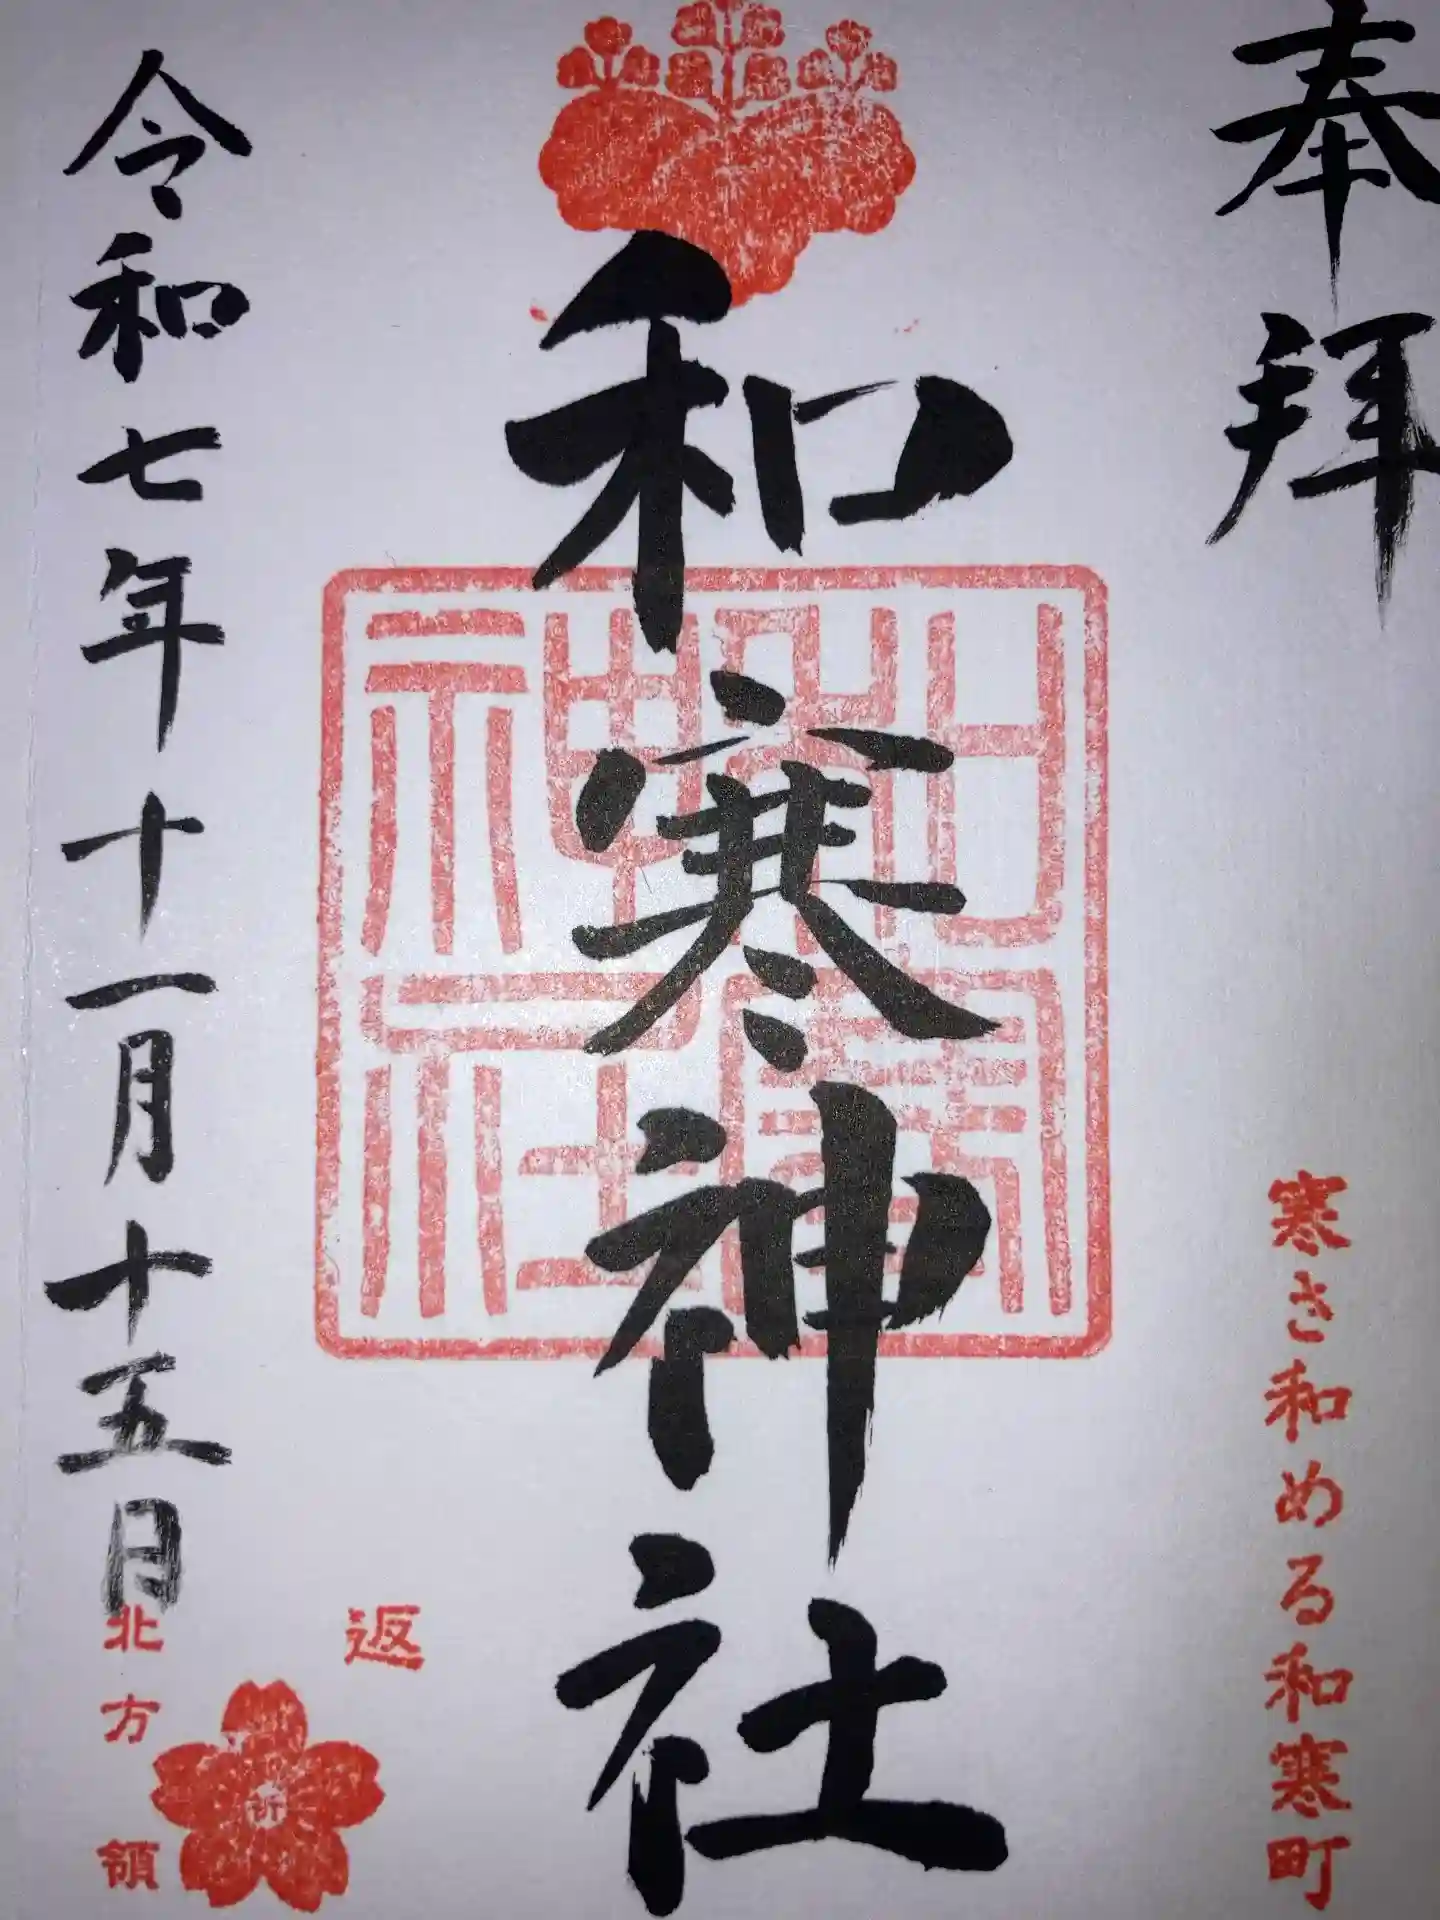 奉拝
寒さ和める和寒町
和寒神社
和寒神社
令和七年十一月十五日
祈
返
北方領